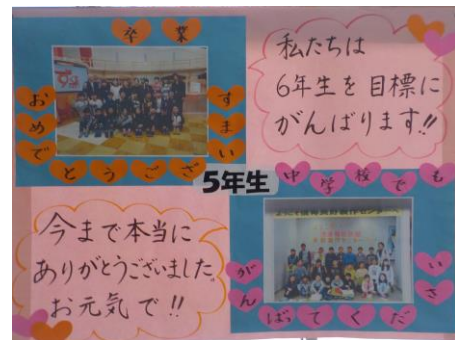 卒業
おめでとうございます
私たちは
6年生を目標に
がんばります!!
5年生
今まで本当に
ありがとうございました。
お元気で!!
中学校でも
がんばてください